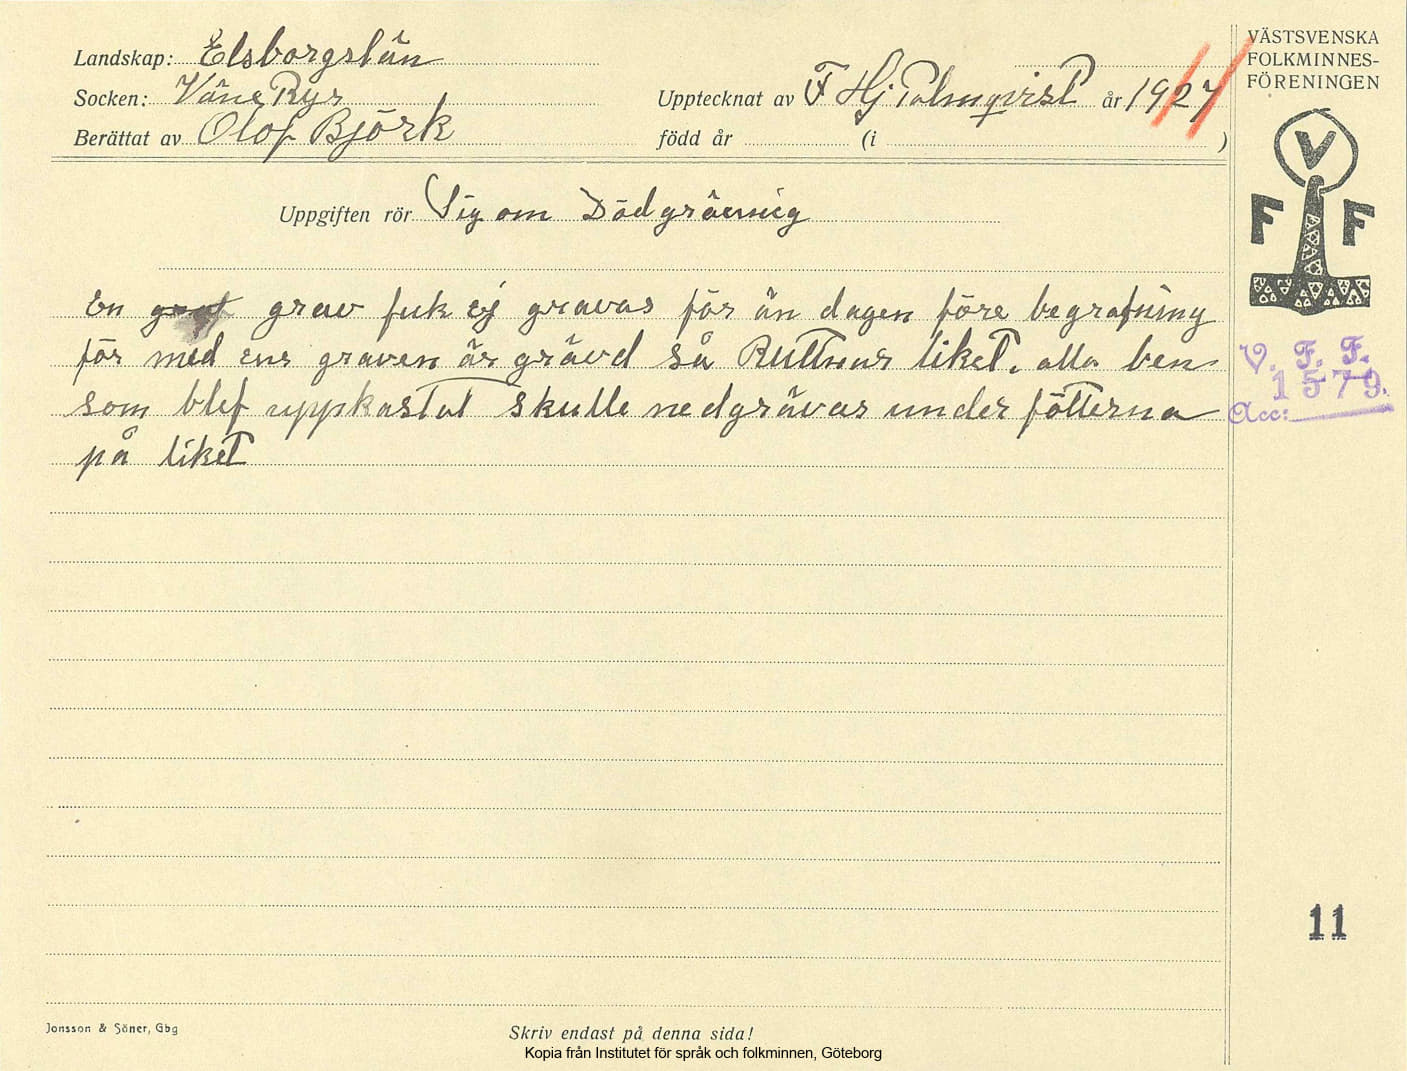 Landskap: Elsborgslän
Socken: Väne Ryr
Berättat av Olof Björk
Upptecknat av F Hj. Palmqvist år 1927
född år (i )
Uppgiften rör Sig om Död grävnig
En graf grav fuk ej gravas för än dagen före begrafning
för med ens graven är grävd så Ruttnar liket. alla ben
som blef uppkastat skulle nedgrävas under fötterna
på liket
VÄSTSVENSKA
FOLKMINNES-
FÖRENINGEN
V
F F
V. F. F.
1579.
Acc:
11
Jonsson & Söner, Gbg
Skriv endast på denna sida!
Kopia från Institutet för språk och folkminnen, Göteborg